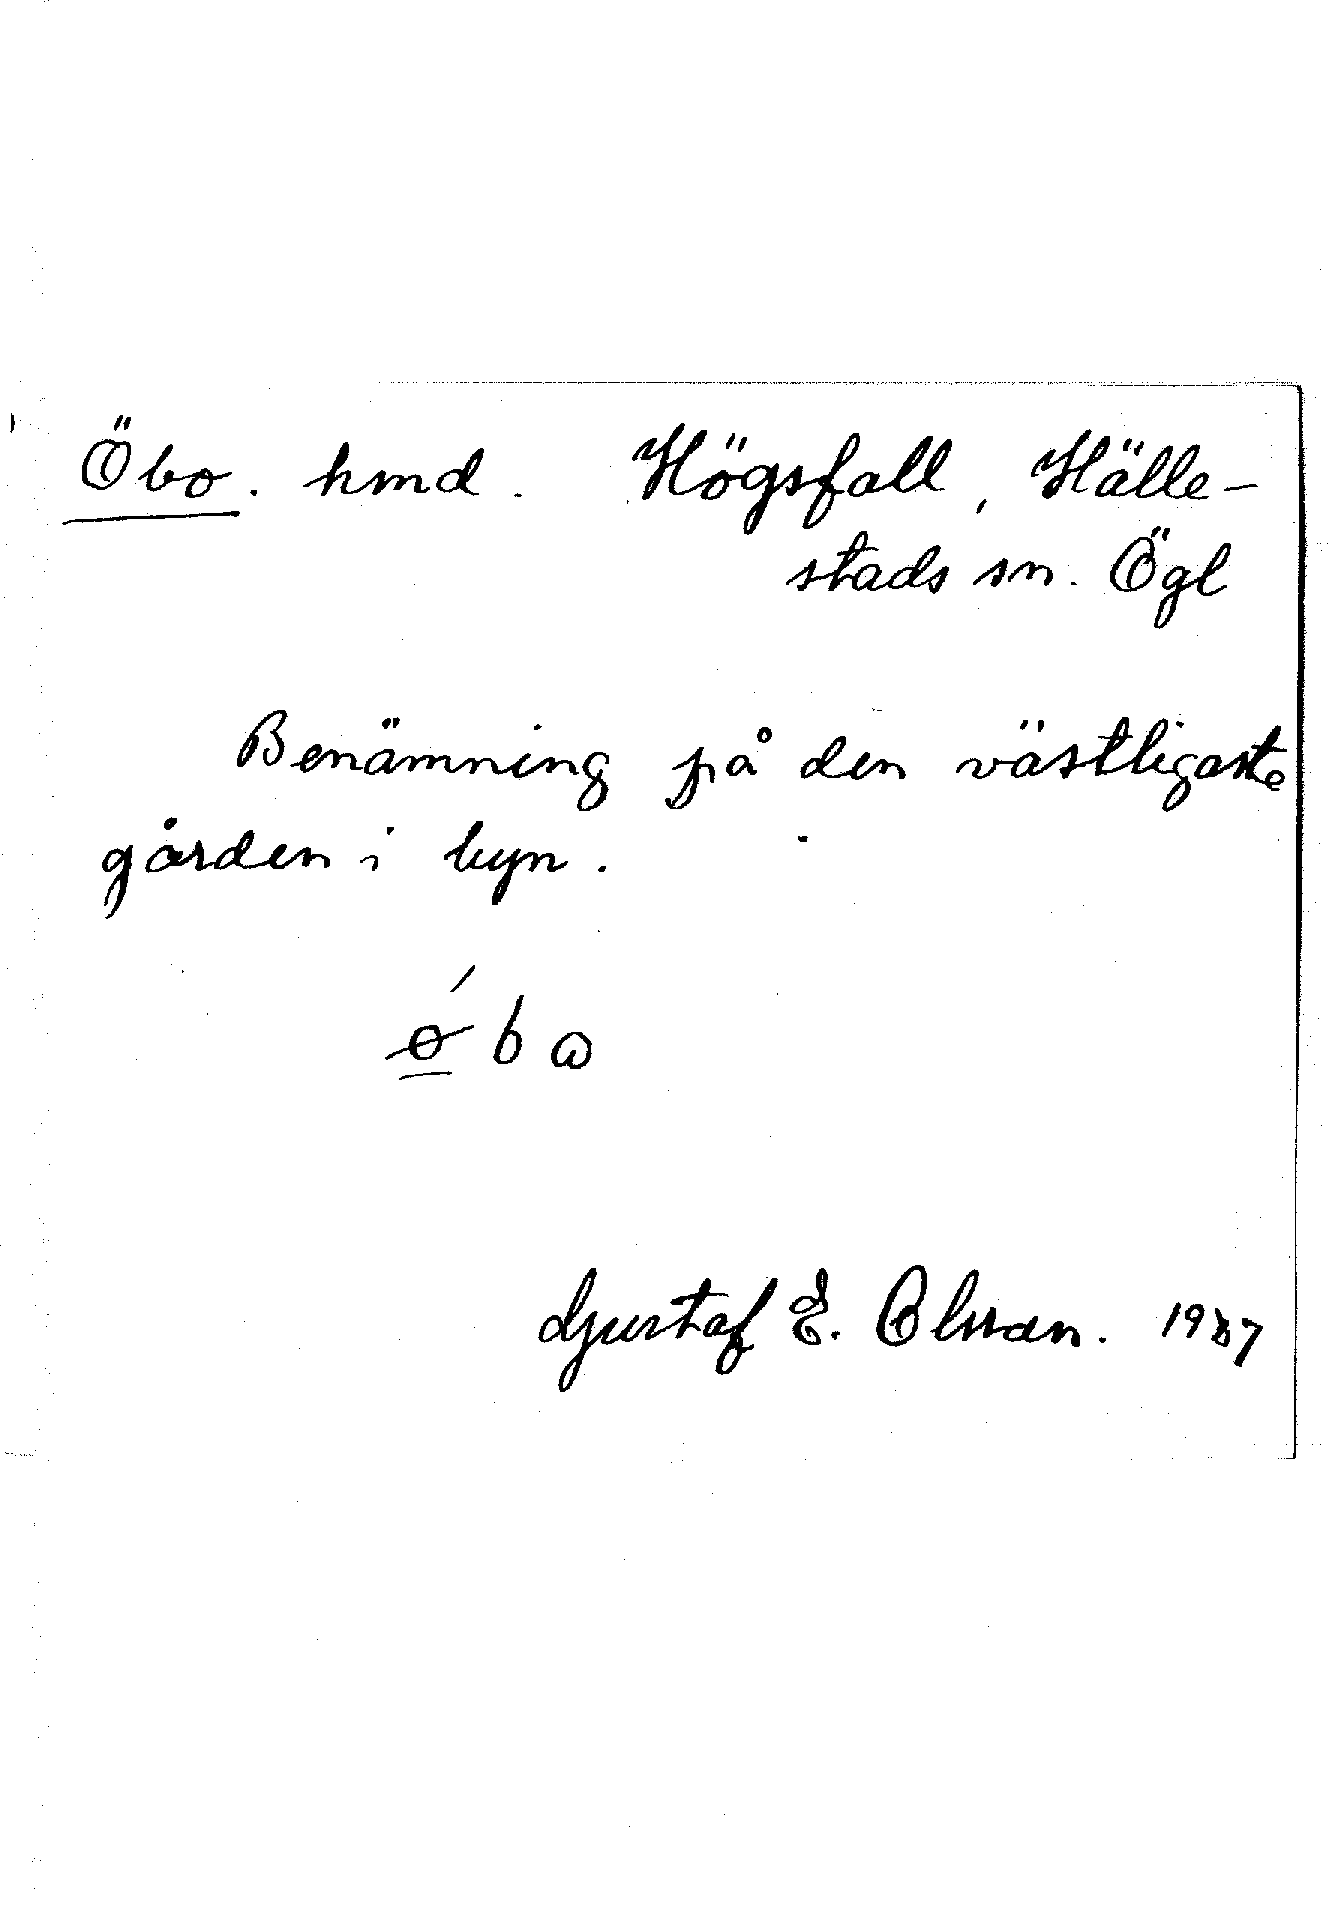 Öbo. hmd. Högsfall, Hälle-
stads sn. Ögl
Benämning på den västligaste
gården i byn.
Gustaf E. Olsson.